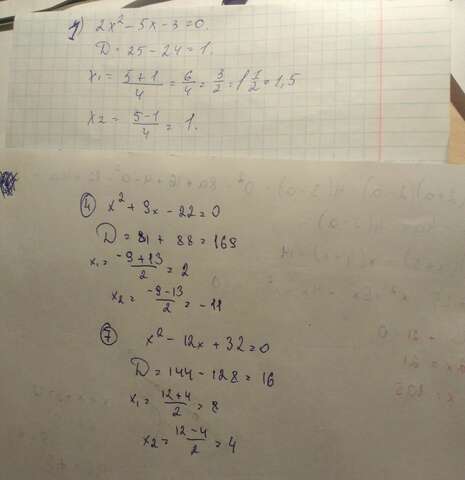 у) 2x² - 5x - 3 = 0.
D = 25 - 24 = 1.
x₁ = (5+1)/4 = 6/4 = 3/2 = 1 1/2 = 1,5
x₂ = (5-1)/4 = 1.
④ x² + 9x - 22 = 0
D = 81 + 88 = 169
x₁ = (-9+13)/2 = 2
x₂ = (-9-13)/2 = -11
⑦ x² - 12x + 32 = 0
D = 144 - 128 = 16
x₁ = (12+4)/2 = 8
x₂ = (12-4)/2 = 4